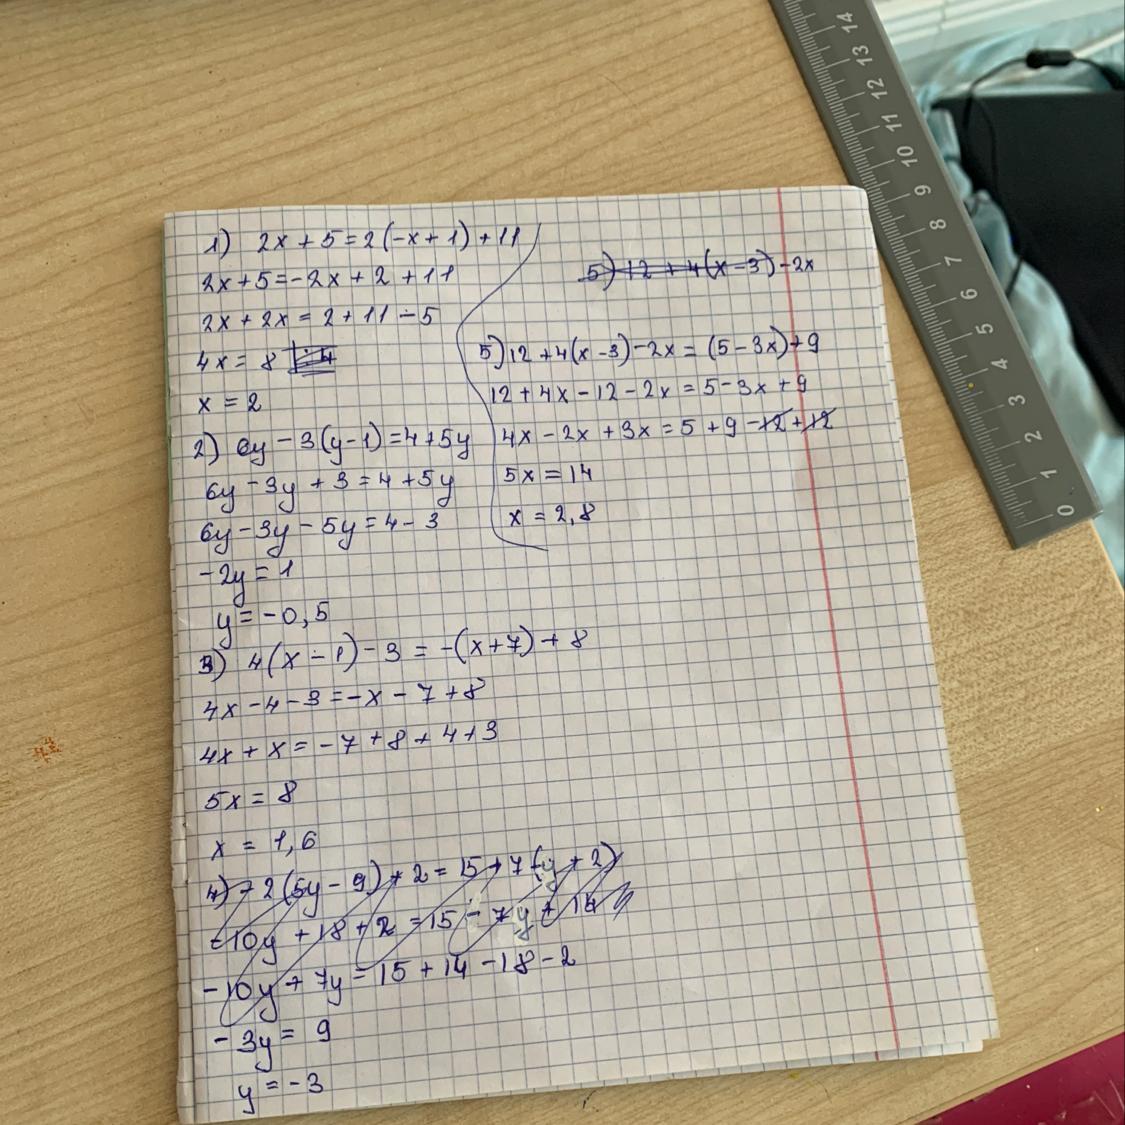 1) 2x + 5 = 2(-x + 1) + 11
2x + 5 = -2x + 2 + 11
2x + 2x = 2 + 11 - 5
4x = 8
x = 2
2) 6y - 3(y - 1) = 4 + 5y
6y - 3y + 3 = 4 + 5y
6y - 3y - 5y = 4 - 3
-2y = 1
y = -0,5
3) 4(x - 1) - 3 = -(x + 7) + 8
4x - 4 - 3 = -x - 7 + 8
4x + x = -7 + 8 + 4 + 3
5x = 8
x = 1,6
4) -2(5y - 9) + 2 = 15 + 7(-y + 2)
-10y + 18 + 2 = 15 - 7y + 14
-10y + 7y = 15 + 14 - 18 - 2
-3y = 9
y = -3
5) 12 + 4(x - 3) - 2x
5) 12 + 4(x - 3) - 2x = (5 - 3x) + 9
12 + 4x - 12 - 2x = 5 - 3x + 9
4x - 2x + 3x = 5 + 9 - 12 + 12
5x = 14
x = 2,8
0 1 2 3 4 5 6 7 8 9 10 11 12 13 14